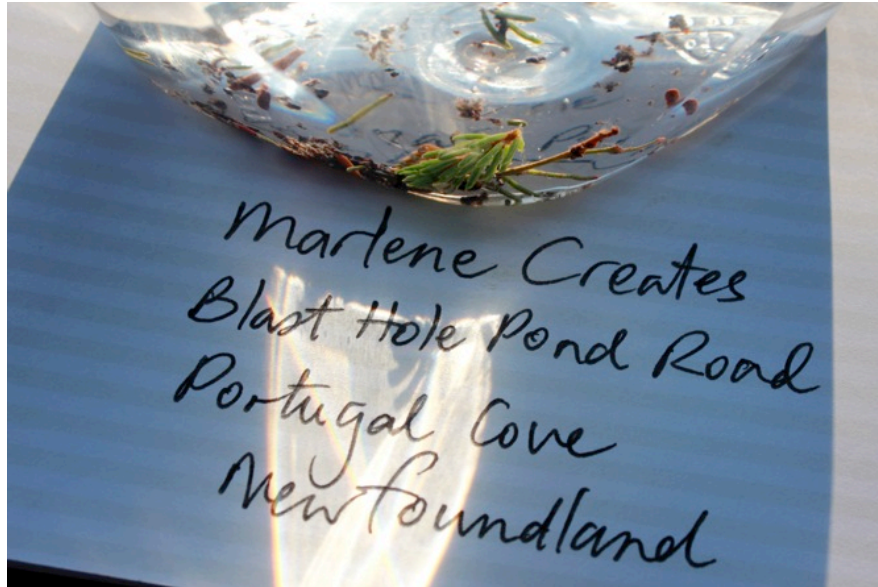 Marlene Creates
Blast Hole Pond Road
Portugal Cove
Newfoundland